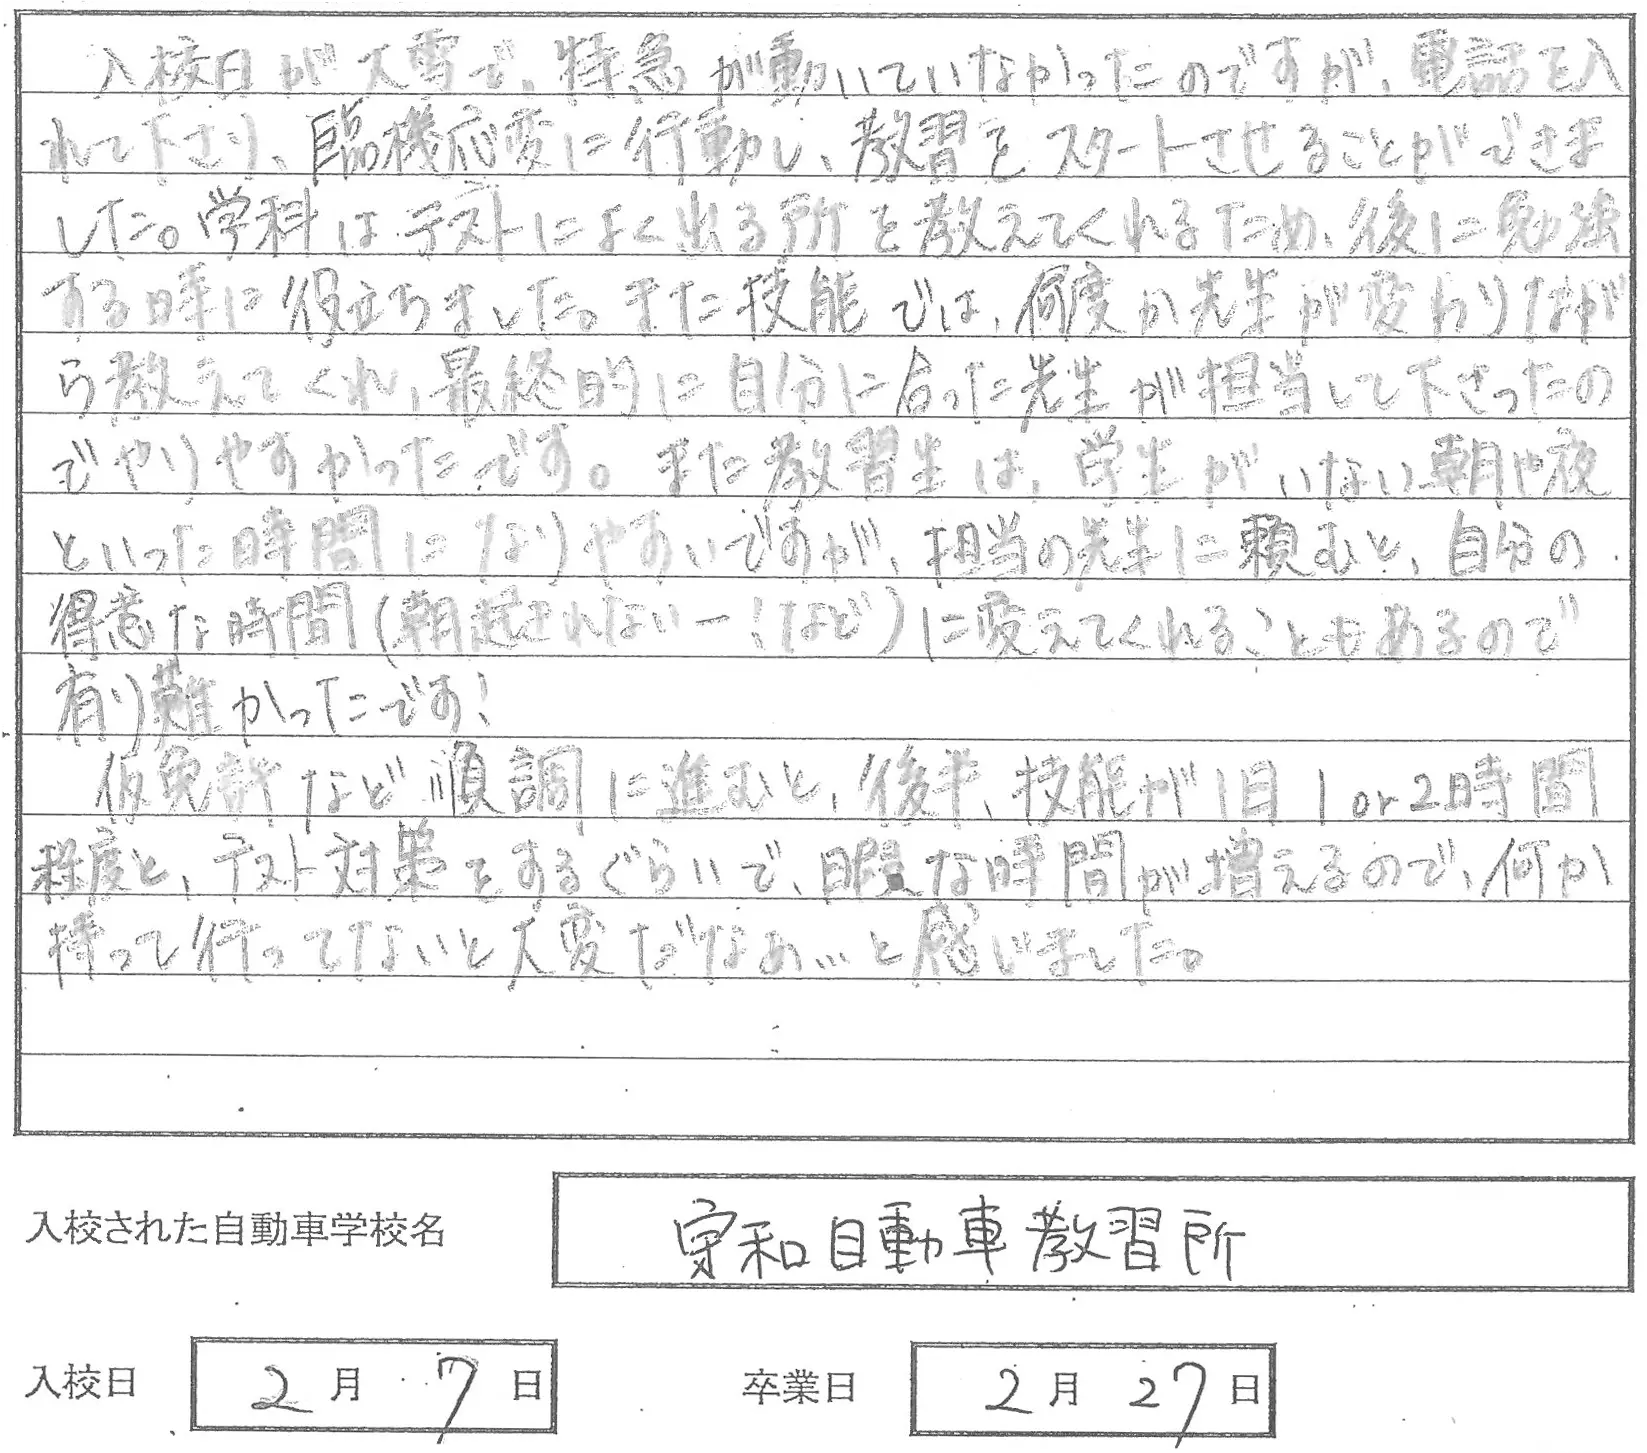 入校日が大雪で、特急が動いていなかったのですが、電話を入
れて下さり、臨機応変に行動し、教習をスタートさせることができま
した。学科はテストによく出る所を教えてくれるため、後に勉強
する時に役立ちました。また技能では、何度か先生が変わりなが
ら教えてくれ、最終的に自分に合った先生が担当して下さったの
でやりやすかったです。また教習生は、学生がいない朝や夜
といった時間になりやすいですが、担当の先生に頼むと、自分の
得意な時間(朝起きれないー!など)に変えてくれることもあるので
有り難かったです!
仮免許など順調に進むと、後半、技能が1日1or2時間
程度と、テスト対策をするぐらいで、暇な時間が増えるので、何か
持って行ってないと大変だなぁ…と感じました。
入校された自動車学校名 守和自動車教習所
入校日 2月 7日 卒業日 2月 27日